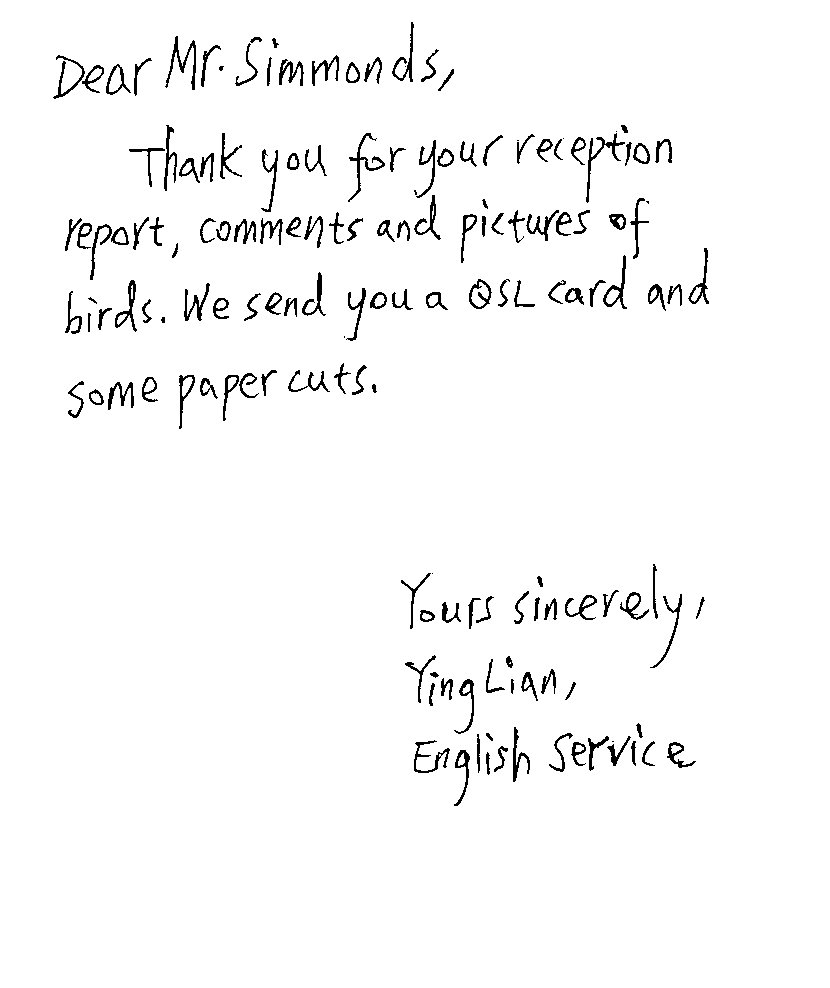 Dear Mr. Simmonds,
Thank you for your reception
report, comments and pictures of
birds. We send you a QSL card and
some paper cuts.
Yours sincerely,
Ying Lian,
English Service